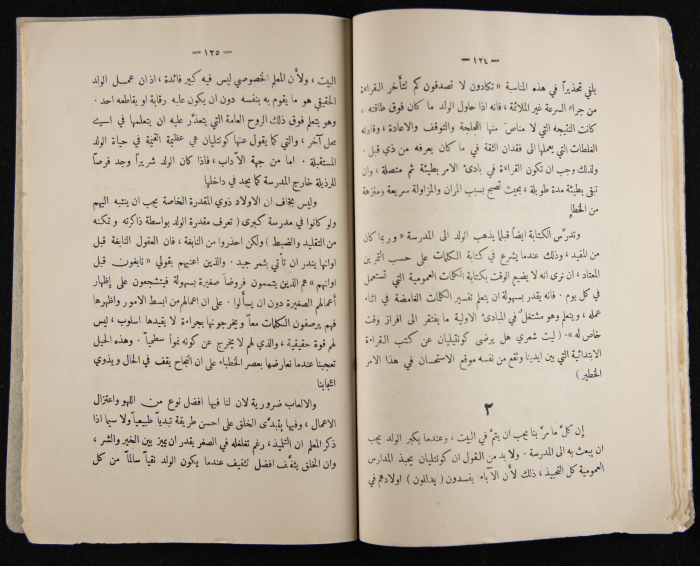 — ١٢٤ —
يلقي تحذيراً في هذه المناسبة « تكادون لا تصدقون كم تتأخر القراءة
من جراء السرعة غير الملائمة ، فانه اذا حاول الولد ما كان فوق طاقته ،
كانت النتيجة التي لا مناص منها اللجلجة والتوقف والاعادة ، وقادته
الغلطات التي يعملها الى فقدان الثقة في ما كان يعرفه من ذي قبل .
ولذلك وجب ان تكون القراءة في بادئ الامر بطيئة ثم متصلة ، وان
تبقى بطيئة مدة طويلة ، بحيث تصبح بسبب المران والمزاولة سريعة ومنزهة
من الخطإ
وتدرَّس الكتابة ايضاً قبلما يذهب الولد الى المدرسة « وربما كان
من المفيد ، وذلك عندما يشرع في كتابة الكلمات على حسب التمرين
المعتاد ، ان نرى انه لا يضيع الوقت بكتابة الكلمات العمومية التي تستعمل
في كل يوم . فانه يقدر بسهولة ان يتعلم تفسير الكلمات الغامضة في اثناء
عمله ، ويتعلم وهو مشتغل في المبادئ الاولية ما يفتقر الى افراز وقت
خاص له » . ( ليت شعري هل يرضى كونتيليان عن كتب القراءة
الابتدائية التي بين ايدينا وتقع من نفسه موقع الاستحسان في هذا الامر
الخطير )
٢
إن كلَّ ما مرَّ بنا يجب ان يتمَّ في البيت ، وعندما يكبر الولد يجب
ان يبعث به الى المدرسة . ولا بد من القول ان كونتليان يحبذ المدارس
العمومية كل التحبيذ ، ذلك لأن الآباء يفسدون ( يدللون ) اولادهم في
— ١٢٥ —
البيت ، ولأن المعلم الخصوصي ليس فيه كبير فائدة ، اذ ان عمل الولد
الحقيقي هو ما يقوم به بنفسه دون ان يكون عليه رقابة او يقاطعه احد .
وهو يتعلم فوق ذلك الروح العامة التي يتعذَّر عليه ان يتعلمها في اسے
محل آخر ، والتي كما يقول عنها كونتليان هي عظيمة القيمة في حياة الولد
المستقبلة . اما من جهة الآداب ، فاذا كان الولد شريراً وجد فرصاً
للرذيلة خارج المدرسة كما يجد في داخلها
وليس يخاف ان الاولاد ذوي المقدرة الخاصة يجب ان ينتبه اليهم
ولو كانوا في مدرسة كبرى ( تعرف مقدرة الولد بواسطة ذاكرته وتمكنه
من التقليد والضبط ) ولكن احذروا من النابغة ، فان العقول النابغة قبل
اوانها يندر ان تأتي بثمر جيد . والذين اعنيهم بقولي « نابغون قبل
اوانهم » هم الذين يتممون فروضاً صغيرة بسهولة فيتشجعون على إظهار
أعمالهم الصغيرة دون ان يسألوا . على ان اعمالهم من ابسط الامور واظهرها
فهم يرصفون الكلمات معاً ويخرجونها بجراءة لا يقيدها اسلوب ، ليس
لهم قوة حقيقية ، والذي لهم لا يخرج عن كونه نمواً سطحياً . وهذه الحيل
تعجبنا عندما نعارضها بعصر الخطباء على ان النجاح يقف في الحال ويذوي
اعجابنا
والالعاب ضرورية لان لنا فيها افضل نوع من اللهو واعتزال
الاعمال ، وفيها يتبدَّى الخلق على احسن طريقة تبدياً طبيعياً ولا سيما اذا
ذكر المعلم ان التلميذ ، رغم تغلغله في الصغر يقدر ان يميز بين الخير والشر ،
وان الخلق يثقَّف افضل تثقيف عندما يكون الولد نقياً سالماً من كل